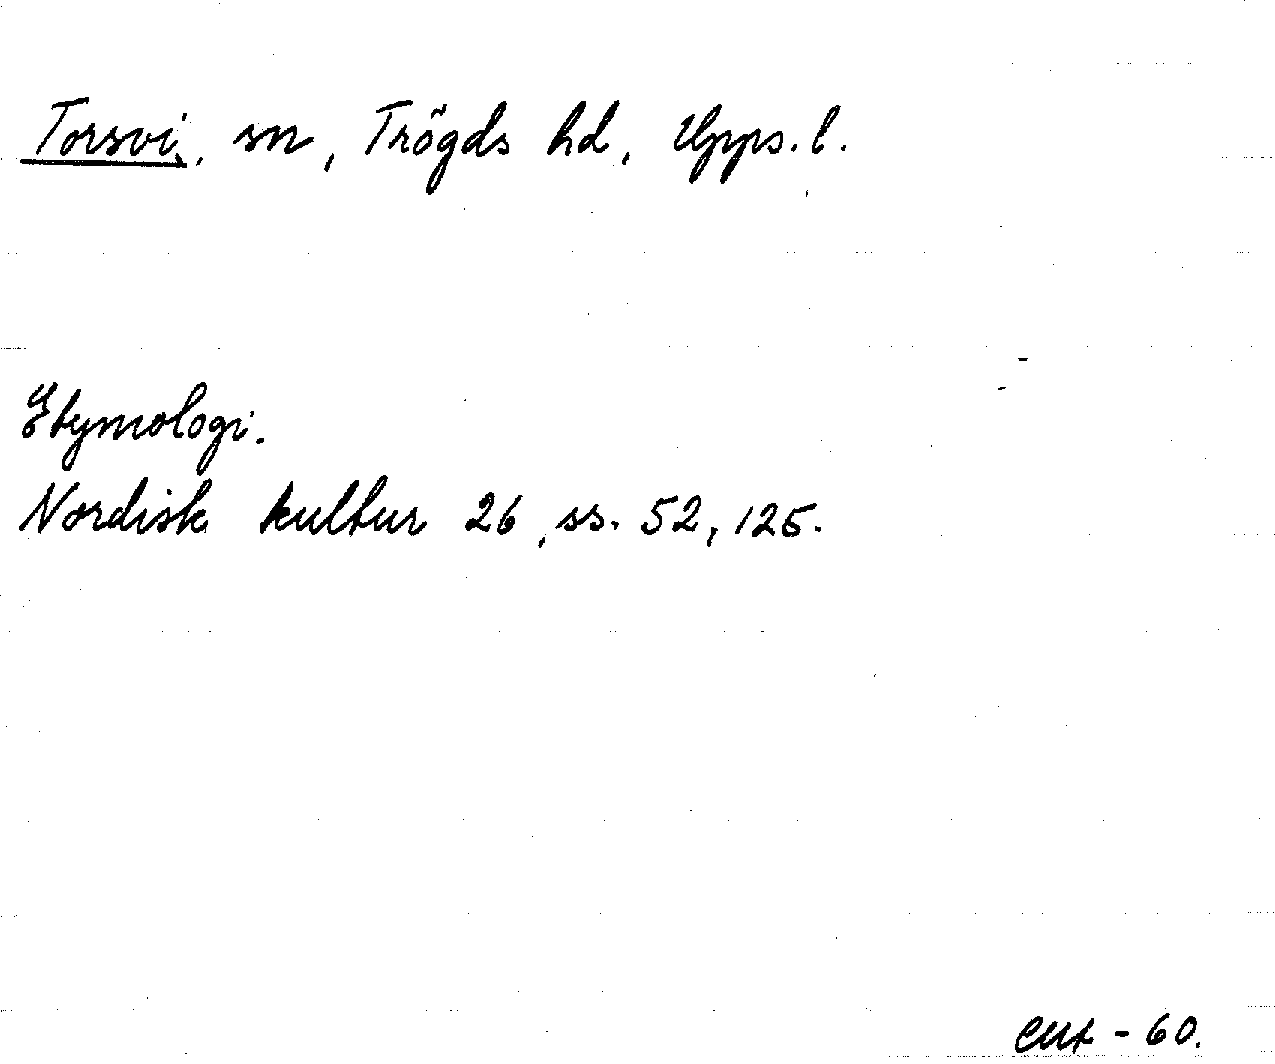 Torsvi, sn, Trögds hd, Upps. l.
Etymologi.
Nordisk kultur 26, ss. 52, 125.
- 60.